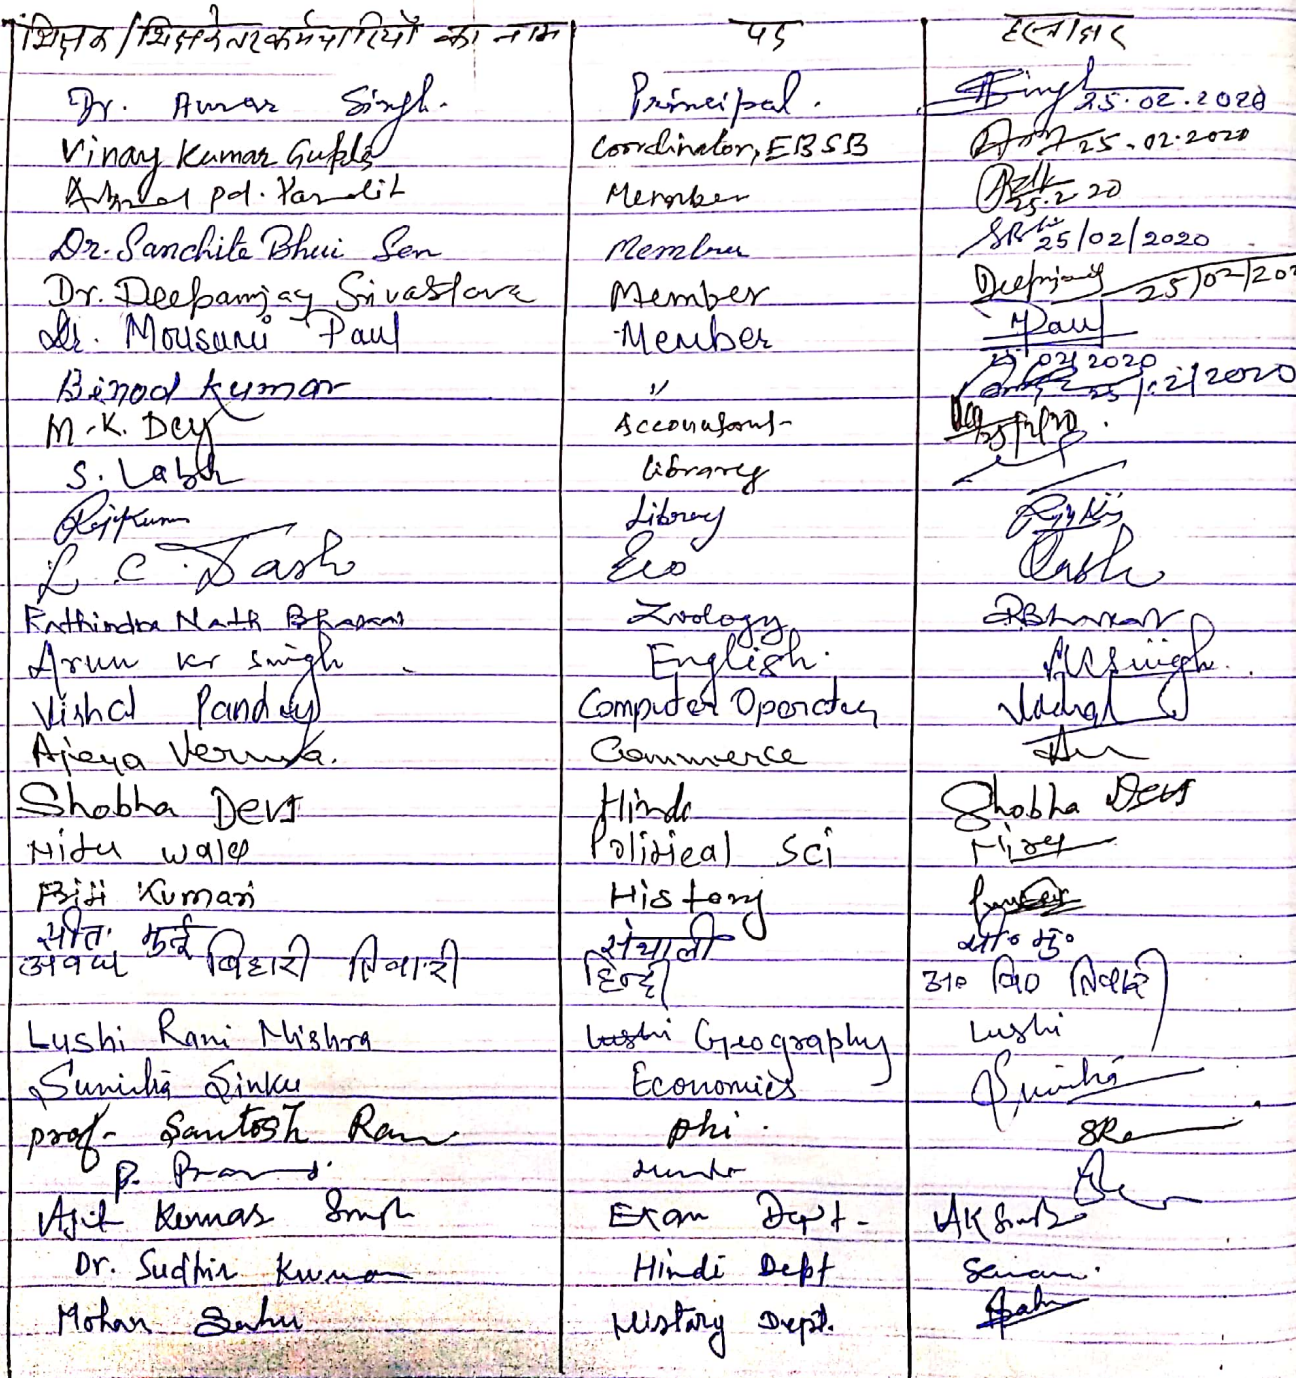 शिक्षक/शिक्षकेतर कर्मचारियों का नाम पद हस्ताक्षर
Dr. Amar Singh. Principal. Singh 25.02.2020
Vinay Kumar Gupta Coordinator, EBSB 25.02.2020
pd. Member 25.2.20
Dr. Sanchita Bhui Sen Member 25/02/2020
Dr. Deepanjay Srivastava Member Deepnjay 25/02/202
Dr. Mousumi Paul Member Paul
02/2020
Binod Kumar " 25/02/2020
M.K. Dey Accountant
S. Labh library
RajKumar Library
L C Dash Eco Dash
Rathindra Nath Bhaskar Zoology RBhaskar
Arun kr singh English. AKsingh.
Vishal Panday Computer Operater Vishal
Ajaya Verma. Commerce
Shobha Devi Hindi Shobha Devi
Nitu Political Sci
Kumari History
मुर्मू संथाली सी० मु०
अवध बिहारी तिवारी हिन्दी अ० बि० तिवारी
Lushi Rani Mishra Geography Lushi
Sunita Sinku Economics Sunita
prof- Santosh Ram phi. SR
P.
Ajit Kumar Singh Exam Dept- AK Singh
Dr. Sudhir Kumar Hindi Dept
Mohan Sahu History Dept. Sahu